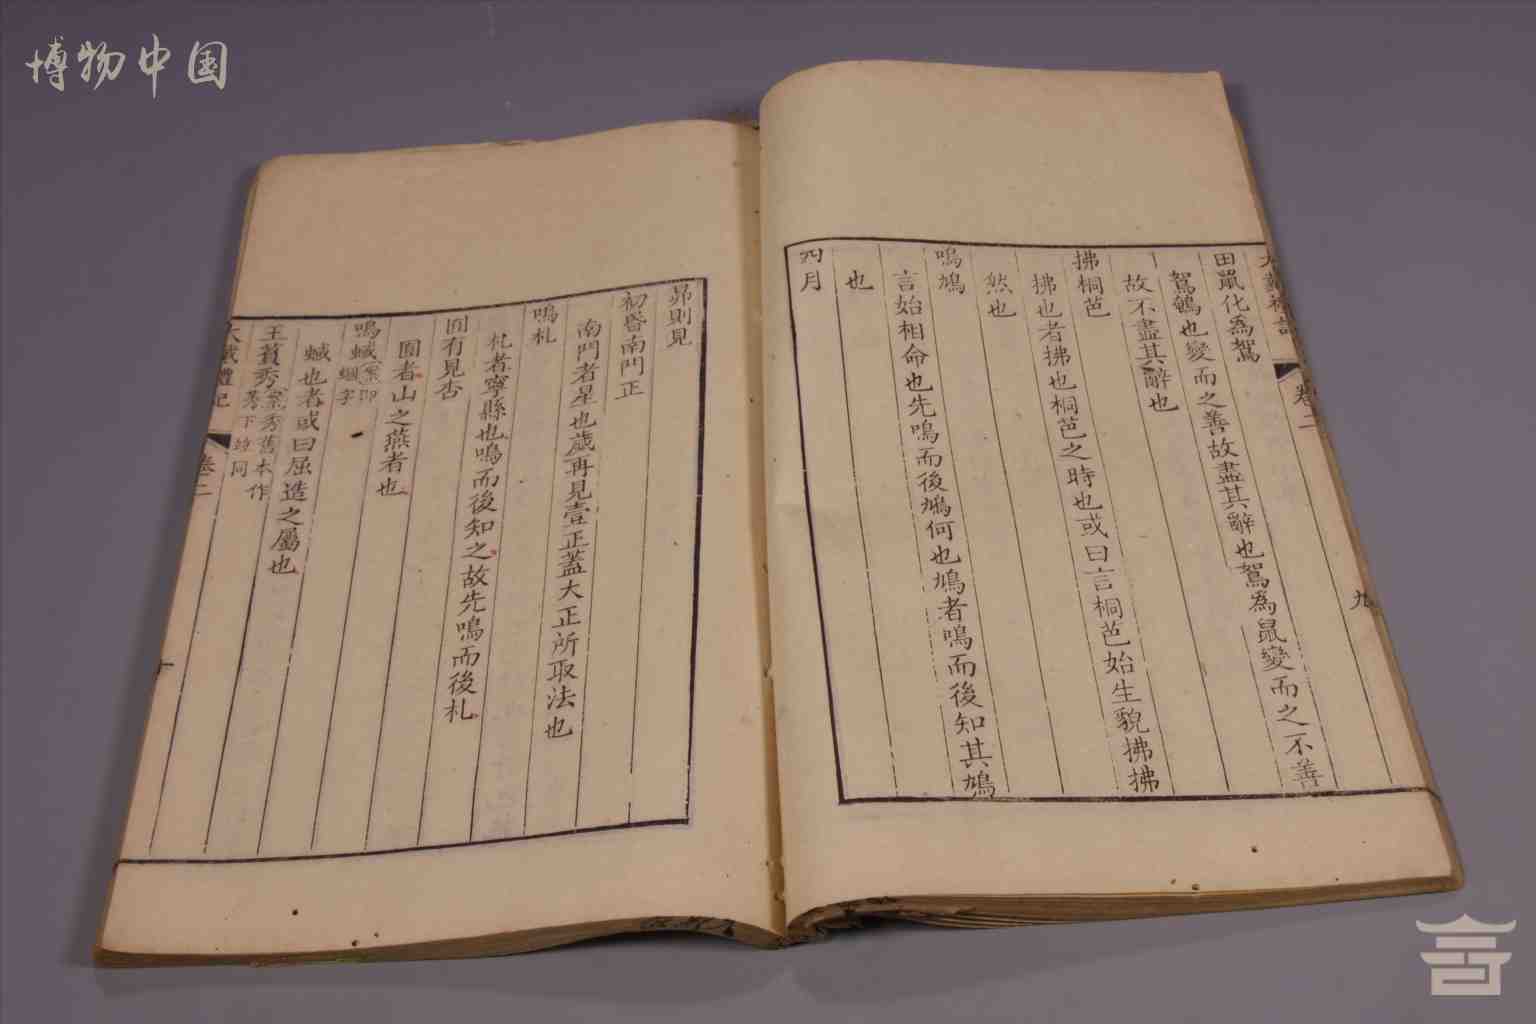 博物中国
大戴禮記
卷二
九
田鼠化為鴽
鴽鵪也變而之善故盡其辭也鴽為鼠變而之不善
故不盡其辭也
拂桐芭
拂也者拂也桐芭之時也或曰言桐芭始生貌拂拂
然也
鳴鳩
言始相命也先鳴而後鳩何也鳩者鳴而後知其鳩
也
四月
昴則見
初昏南門正
南門者星也歲再見壹正蓋大正所取法也
鳴札
札者寧縣也鳴而後知之故先鳴而後札
囿有見杏
囿者山之燕者也
鳴蜮案即蟈字
蜮也者或曰屈造之屬也
王萯秀案秀舊本作莠下竝同
大戴禮記
卷二